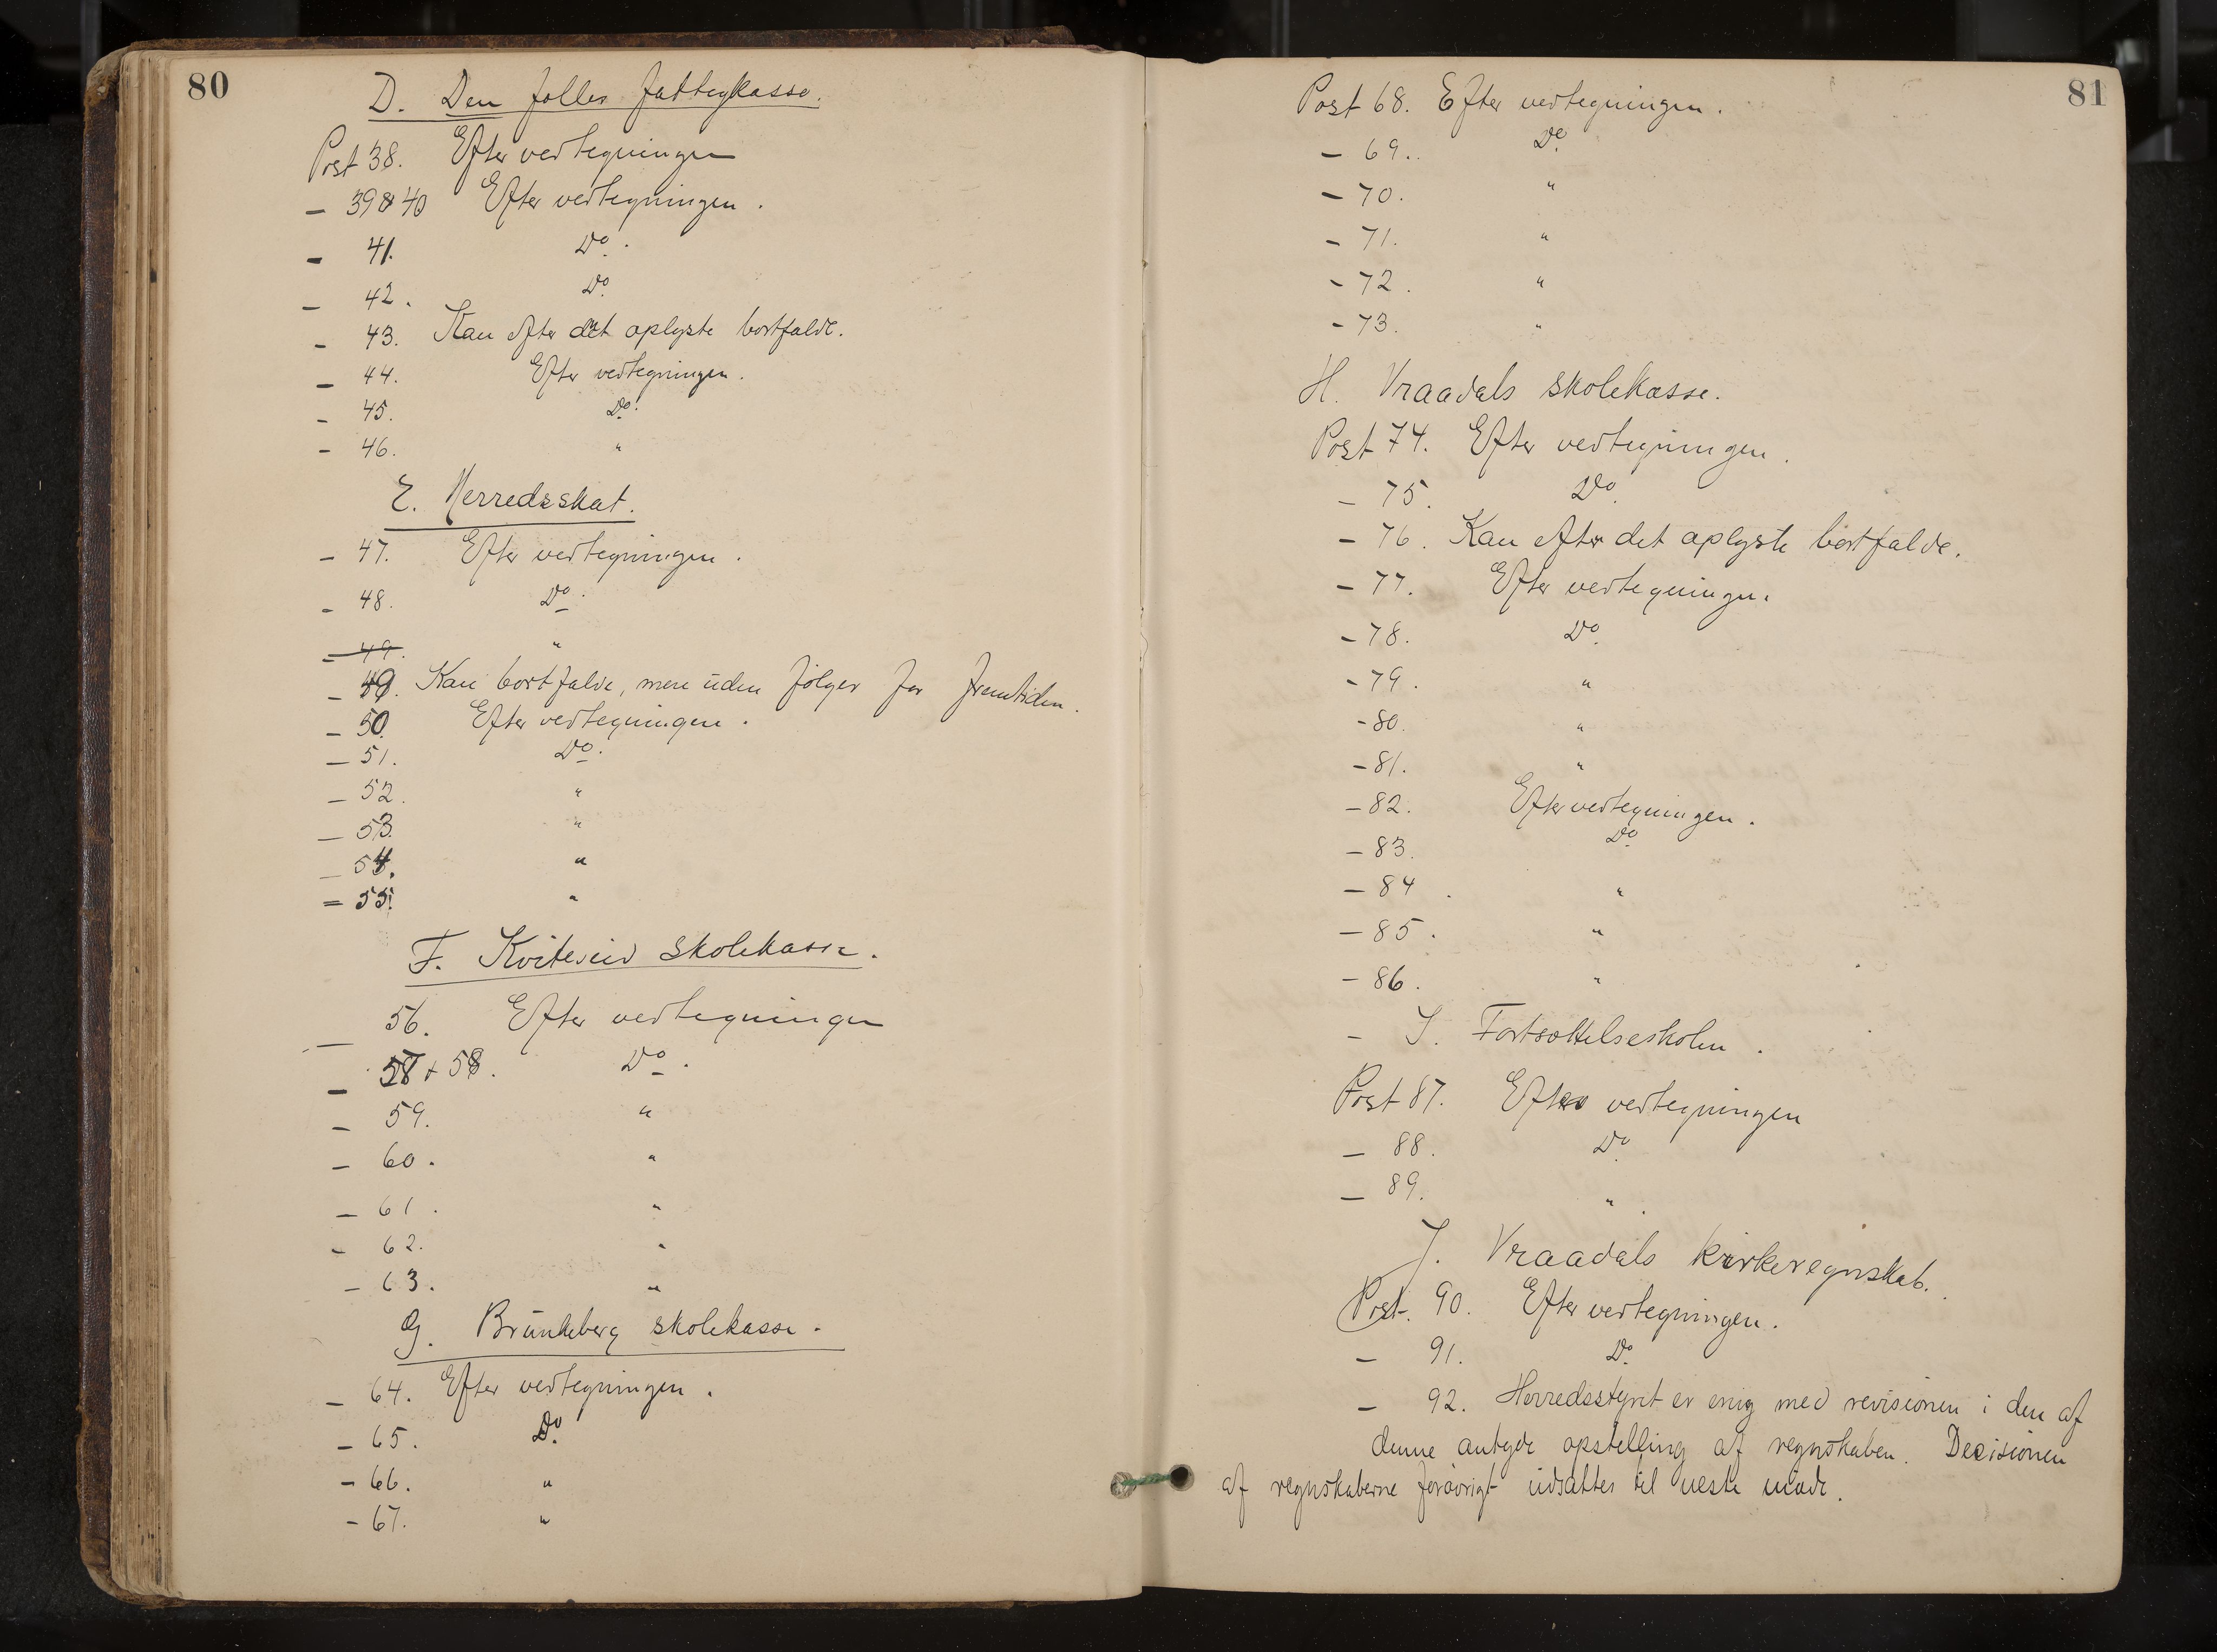 80
D. Den fælles fattigkasse.
Post 38. Efter vedtegningen
- 39 & 40 Efter vedtegningen.
- 41. Do.
- 42. Do
- 43. Kan efter det oplyste bortfalde.
- 44. Efter vedtegningen.
- 45. Do.
- 46. "
E. Herredsskat.
- 47. Efter vedtegningen.
- 48. Do.
- 49. "
- 49. Kan bortfalde, men uden følger for fremtiden.
- 50. Efter vedtegningen.
- 51. Do.
- 52. "
- 53. "
- 54. "
- 55. "
F. Kviteseid skolekasse.
- 56. Efter vedtegningen
- 57 + 58. Do.
- 59. "
- 60. "
- 61. "
- 62. "
- 63. "
G. Brunkeberg skolekasse.
- 64. Efter vedtegningen.
- 65. Do.
- 66. "
- 67. "
81
Post 68. Efter vedtegningen.
- 69. Do.
- 70. "
- 71. "
- 72. "
- 73. "
H. Vraadals skolekasse.
Post 74. Efter vedtegningen.
- 75. Do.
- 76. Kan efter det oplyste bortfalde.
- 77. Efter vedtegningen.
- 78. Do.
- 79. "
- 80. "
- 81. "
- 82. Efter vedtegningen.
- 83. Do
- 84. "
- 85. "
- 86. "
- I. Fortsættelsesskolen.
Post 87. Efter vedtegningen
- 88. Do
- 89. "
J. Vraadals kirkeregnskab.
Post. 90. Efter vedtegningen.
- 91. Do.
- 92. Herredsstyret er enig med revisionen i den af
denne antyde opstelling af regnskaben. Decisionen
af regnskaberne forøvrigt udsættes til neste møde.